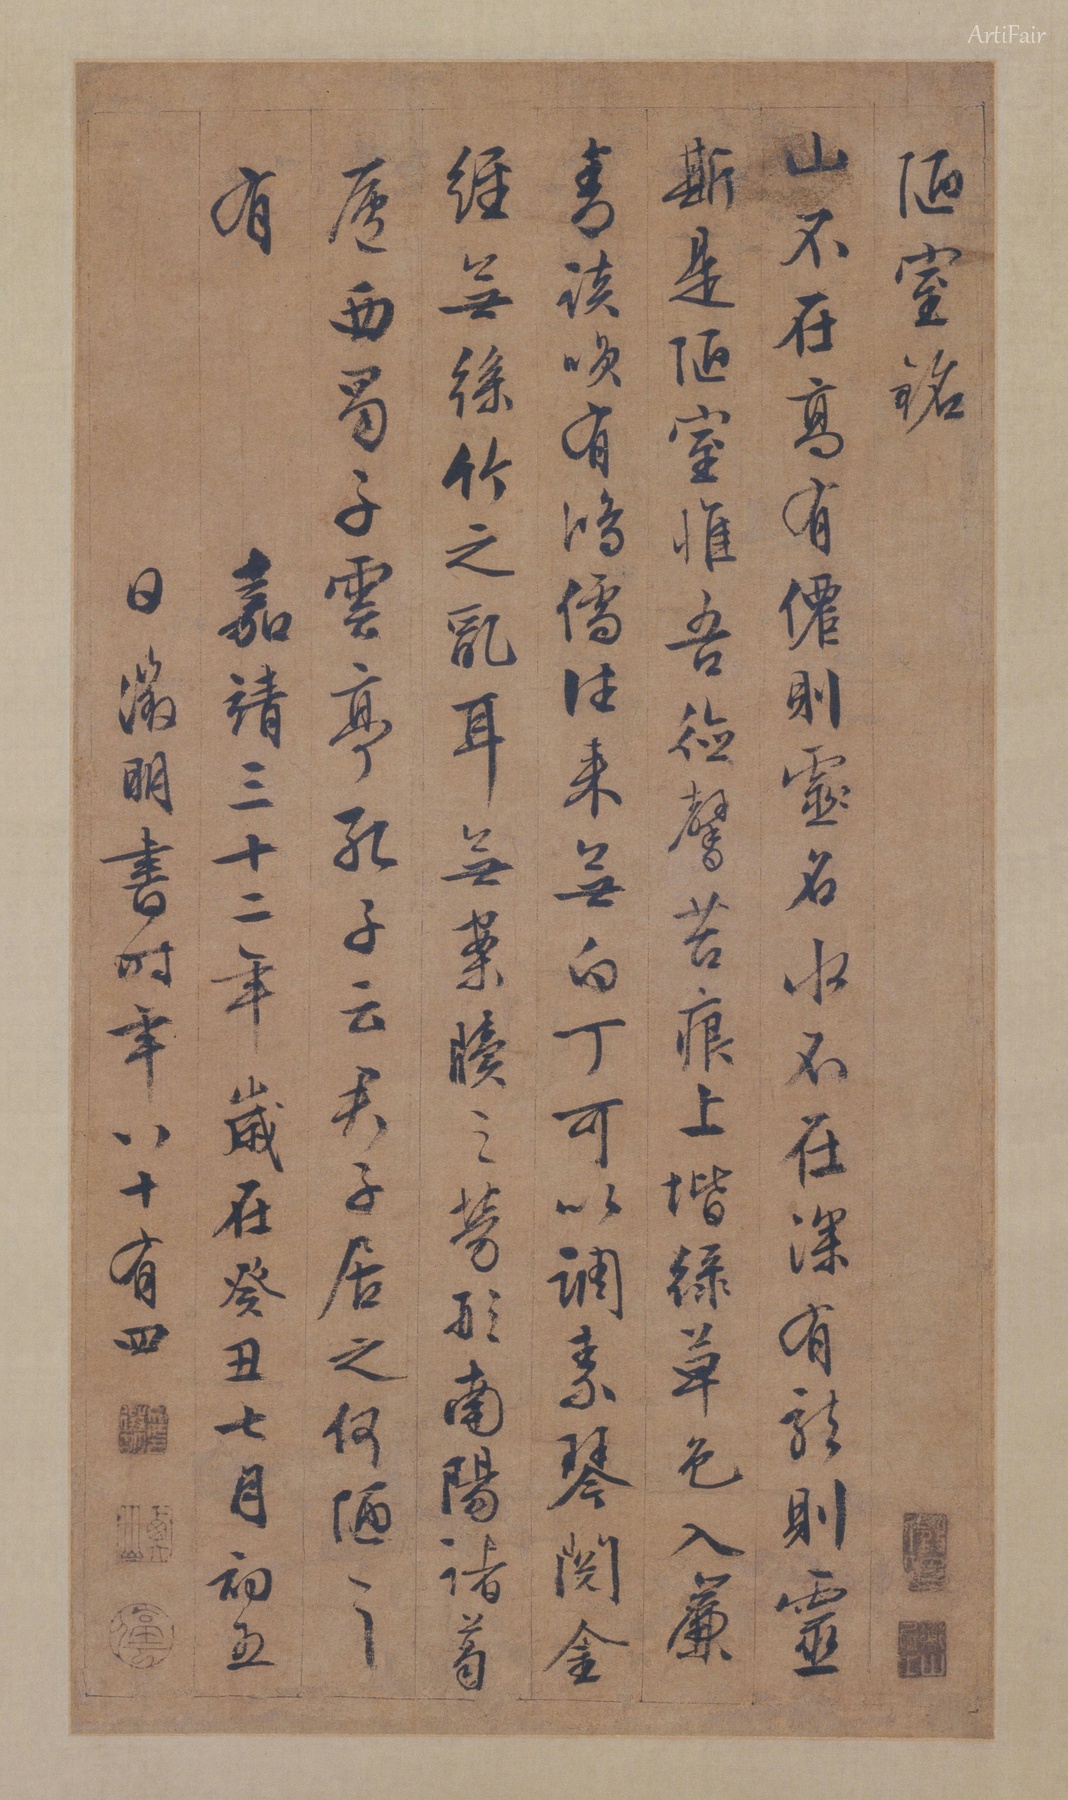 陋室銘
山不在高有僊則靈名水不在深有龍則靈
斯是陋室惟吾德馨苔痕上堦綠草色入簾
青談咲有鴻儒往来無白丁可以調素琴閱金
經無絲竹之亂耳無案牘之勞形南陽諸葛
廬西蜀子雲亭孔子云君子居之何陋之
有
嘉靖三十二年歲在癸丑七月初五
日徵明書時年八十有四
ArtiFair